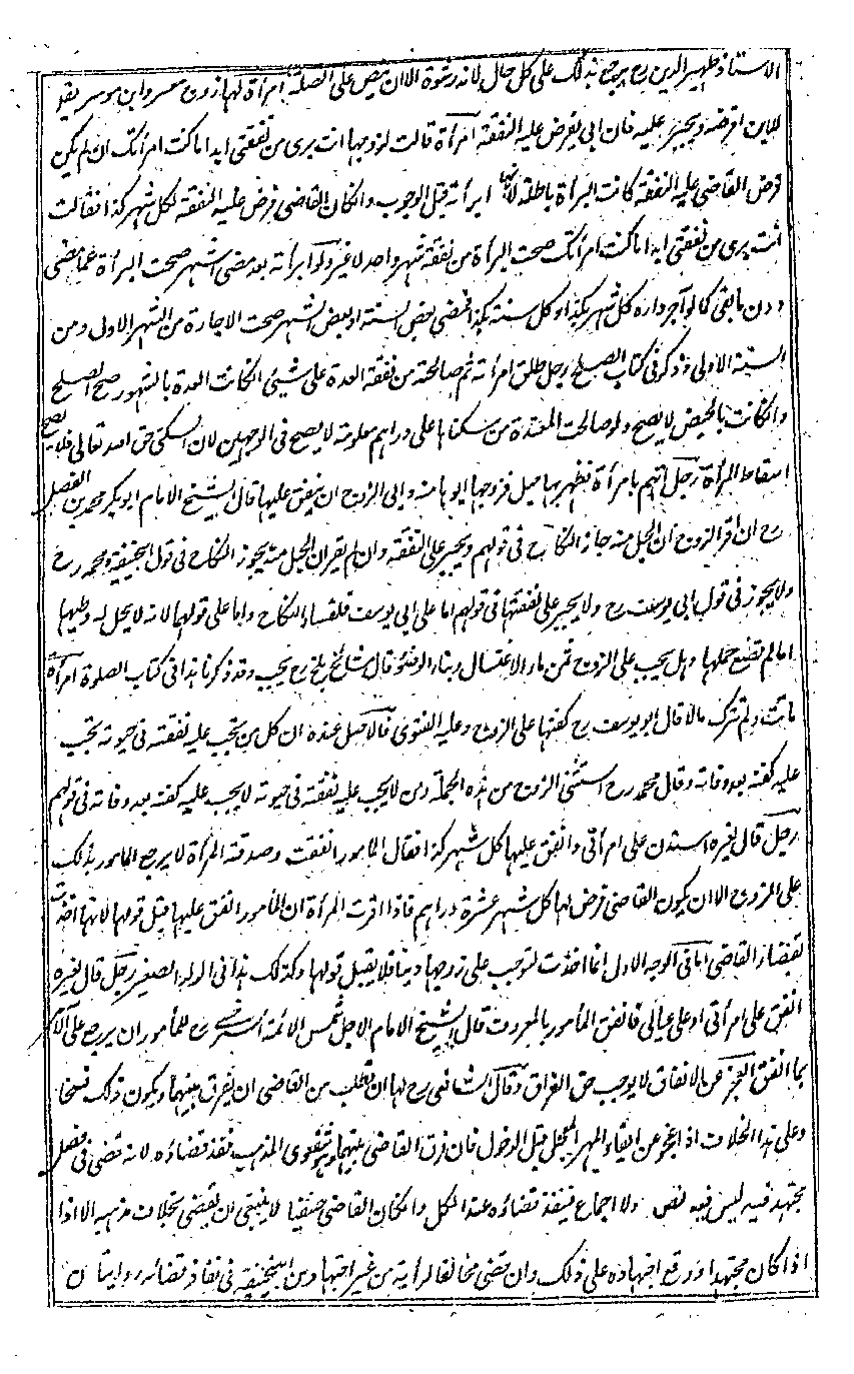 الاستاذ ظهير الدين رح يرجع بذلك على كل حال لانه رشوة الا ان ينص على الصلة امرأة لها زوج معسر وابن موسر يقول
للابن اقرضه ويجبر عليه فان ابى يفرض عليه النفقة امرأة قالت لزوجها انت برى من نفقتى ابدا ما كنت امرأتك ان لم يكن
فرض القاضى عليه النفقة كانت البرأة باطلة لانها ابرأته قبل الوجوب وانكان القاضى فرض عليه النفقة لكل شهر كذا فقالت
انت برى من نفقتى ابدا ما كنت امرأتك صحت البرأة من نفقة شهر واحد لا غير ولو ابرأته بعد مضى اشهر صحت البرأة عما مضى
دون ما بقى كما لو آجر داره كل شهر بكذا وكل سنة بكذا فمضى بعض السنة او بعض الشهر صحت الاجارة من الشهر الاولى ومن
السنة الاولى وذكر فى كتاب الصلح رجل طلق امرأته ثم صالحته من نفقة العدة على شيئ انكانت العدة بالشهور صح الصلح
وانكانت بالحيض لا يصح ولو صالحت المعتدة من سكناها على دراهم معلومة لا يصح فى الوجهين لان السكنى حق الله تعالى فلا يصح
اسقاط المرأة رجل اتهم بامرأة فظهر بها حبل فزوجها ابوها منه وابى الزوج ان ينفق عليها قال الشيخ الامام ابو بكر محمد بن الفضل
رح ان اقر الزوج ان الحبل منه جاز النكاح فى قولهم ويجبر على النفقة وان لم يقر ان الحبل منه يجوز النكاح فى قول ابيحنيفة ومحمد رح
ولا يجوز فى قول ابى يوسف رح ولا يجبر على نفقتها فى قولهم اما على ابى يوسف فلفساد النكاح واما على قولهما لانه لا يحل له وطيها
ما لم تضع حملها وهل يجب على الزوج ثمن ماء الاغتسال وماء الوضوء قال مشايخ بلخ رح يجب وقد ذكرنا هذا فى كتاب الصلوة امرأة
ماتت ولم تترك مالا قال ابو يوسف رح كفنها على الزوج وعليه الفتوى فالاصل عنده ان كل من يجب عليه نفقته فى حيوته يجب
عليه كفنه بعد وفاته وقال محمد رح استثنى الزوج من هذه الجملة ومن لا يجب عليه نفقته فى حيوته لا يجب عليه كفنه بعد وفاته فى قولهم
رجل قال لغيره استدن على امرأتى وانفق عليها كل شهر كذا فقال المامور انفقت وصدقته المرأة لا يرجع المامور بذلك
على الزوج الا ان يكون القاضى فرض لها كل شهر عشرة دراهم فاذا اقرت المرأة ان المأمور انفق عليها قبل قولها لانها اخذت
بقضاء القاضى اما فى الوجه الاول انما اخذت لتوجب على زوجها دينا فلا يقبل قولها وكذلك هذا فى الولد الصغير رجل قال لغيره
انفق على امرأتى او على عيالى فانفق المأمور بالمعروف قال الشيخ الامام الاجل شمس الائمة السرخسى رح للمأمور ان يرجع على الآمر
بما انفق العجز عن الانفاق لا يوجب حق الفراق وقال الشافعى رح لها ان تطلب من القاضى ان يفرق بينهما ويكون ذلك فسخا
وعلى هذا الخلاف اذا عجز عن ايفاء المهر المعجل قبل الدخول فان فرق القاضى بينهما وهو شفعوى المذهب نفذ قضاؤه لانه قضى فى فصل
مجتهد فيه ليس فيه نص ولا اجماع فينفذ قضاؤه عند الكل وانكان القاضى حنفيا لا ينبغى ان يقضى بخلاف مذهبه الا اذا
اذا كان مجتهدا ووقع اجتهاده على ذلك وان قضى مخالفا لرأيه من غير اجتهاد وعن ابيحنيفة فى نفاذ قضائه روايتان